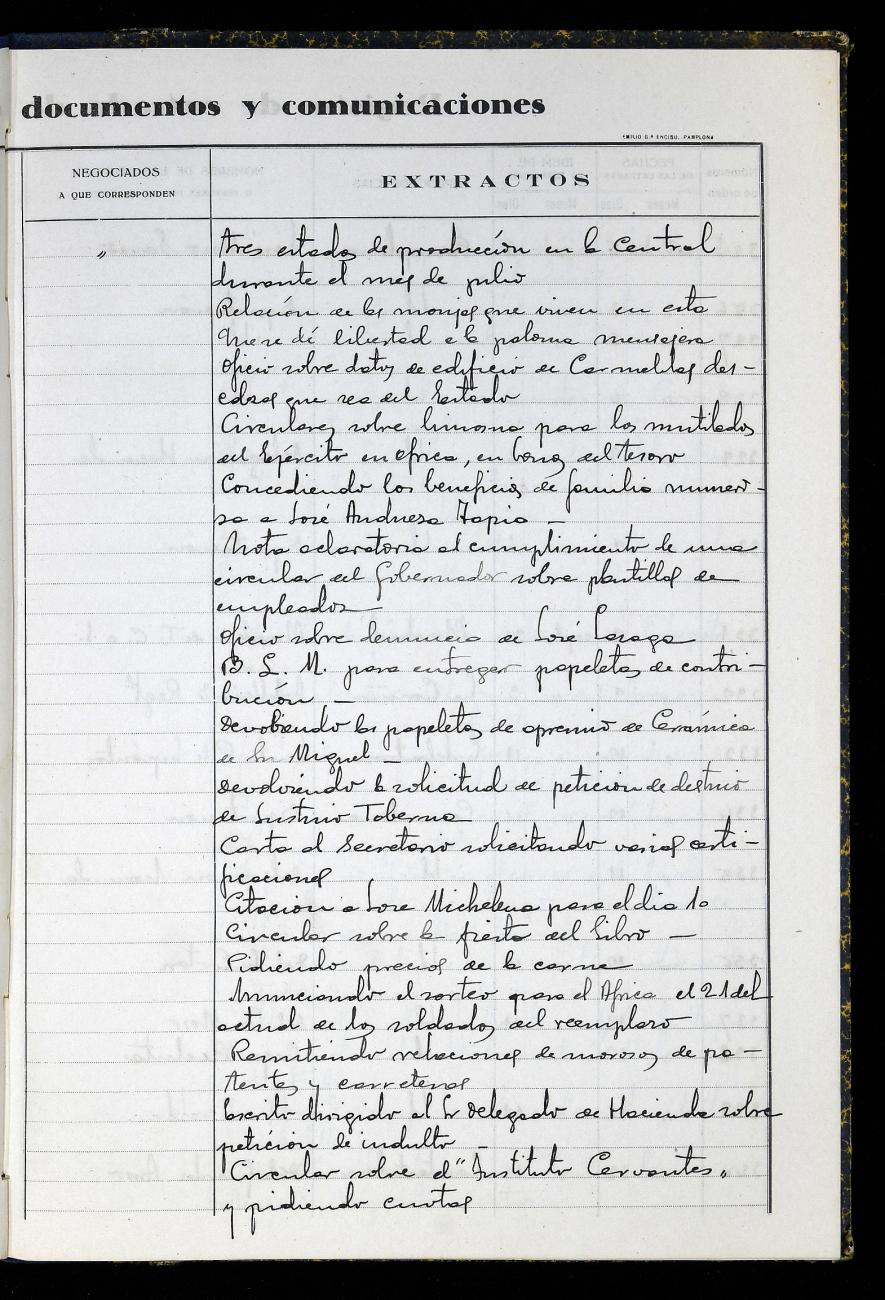 documentos y comunicaciones
EMILIO G.ª ENCISO.-PAMPLONA
NEGOCIADOS
A QUE CORRESPONDEN
EXTRACTOS
"
Tres estados de producción en la Central
durante el mes de julio
Relación de las monjas que viven en esta
Que se dé libertad a la paloma mensajera
Oficio sobre datos de edificio de Carmelitas des-
calzas que sea del Estado
Circulares sobre limosna para los mutilados
del Ejército en Africa, en bonos del tesoro
Concediendo los beneficios de familia numero-
sa a José Andueza Tapia —
Nota aclaratoria al cumplimiento de una
circular del Gobernador sobre plantillas de
empleados
Oficio sobre denuncia de José
B. L. M. para entregar papeletas de contri-
bución —
Devolviendo las papeletas de apremio de Cerámica
de Sn Miguel —
Devolviendo la solicitud de petición de destino
de Justino Taberna
Carta al Secretario solicitando varias certi-
ficaciones
Citación a José Michelena para el día 10
Circular sobre la fiesta del Libro —
Pidiendo precios de la carne
Anunciando el sorteo para el Africa el 21 del
actual de los soldados del reemplazo
Remitiendo relaciones de morosos de pa-
tentes y carreteras
Escrito dirigido al Sr Delegado de Hacienda sobre
petición de indulto —
Circular sobre el "Instituto Cervantes"
y pidiendo cuotas